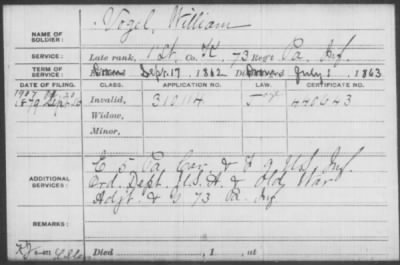 NAME OF SOLDIER: Vogel, William
SERVICE: Late rank, 1 Lt. Co. K, 73 Reg't Pa. Inf.
TERM OF SERVICE: Sept. 17, 1862 July 1, 1863
DATE OF FILING. CLASS. APPLICATION NO. LAW. CERTIFICATE NO.
1879 Sept. 20 Invalid, 310114 440643
Widow,
Minor,
ADDITIONAL SERVICES: E 5 Pa. Cav. & F 9 U.S. Inf.
Ord. Dept. U.S.A. &
Adjt & 73 Pa. Inf.
REMARKS:
Died , 1 , at